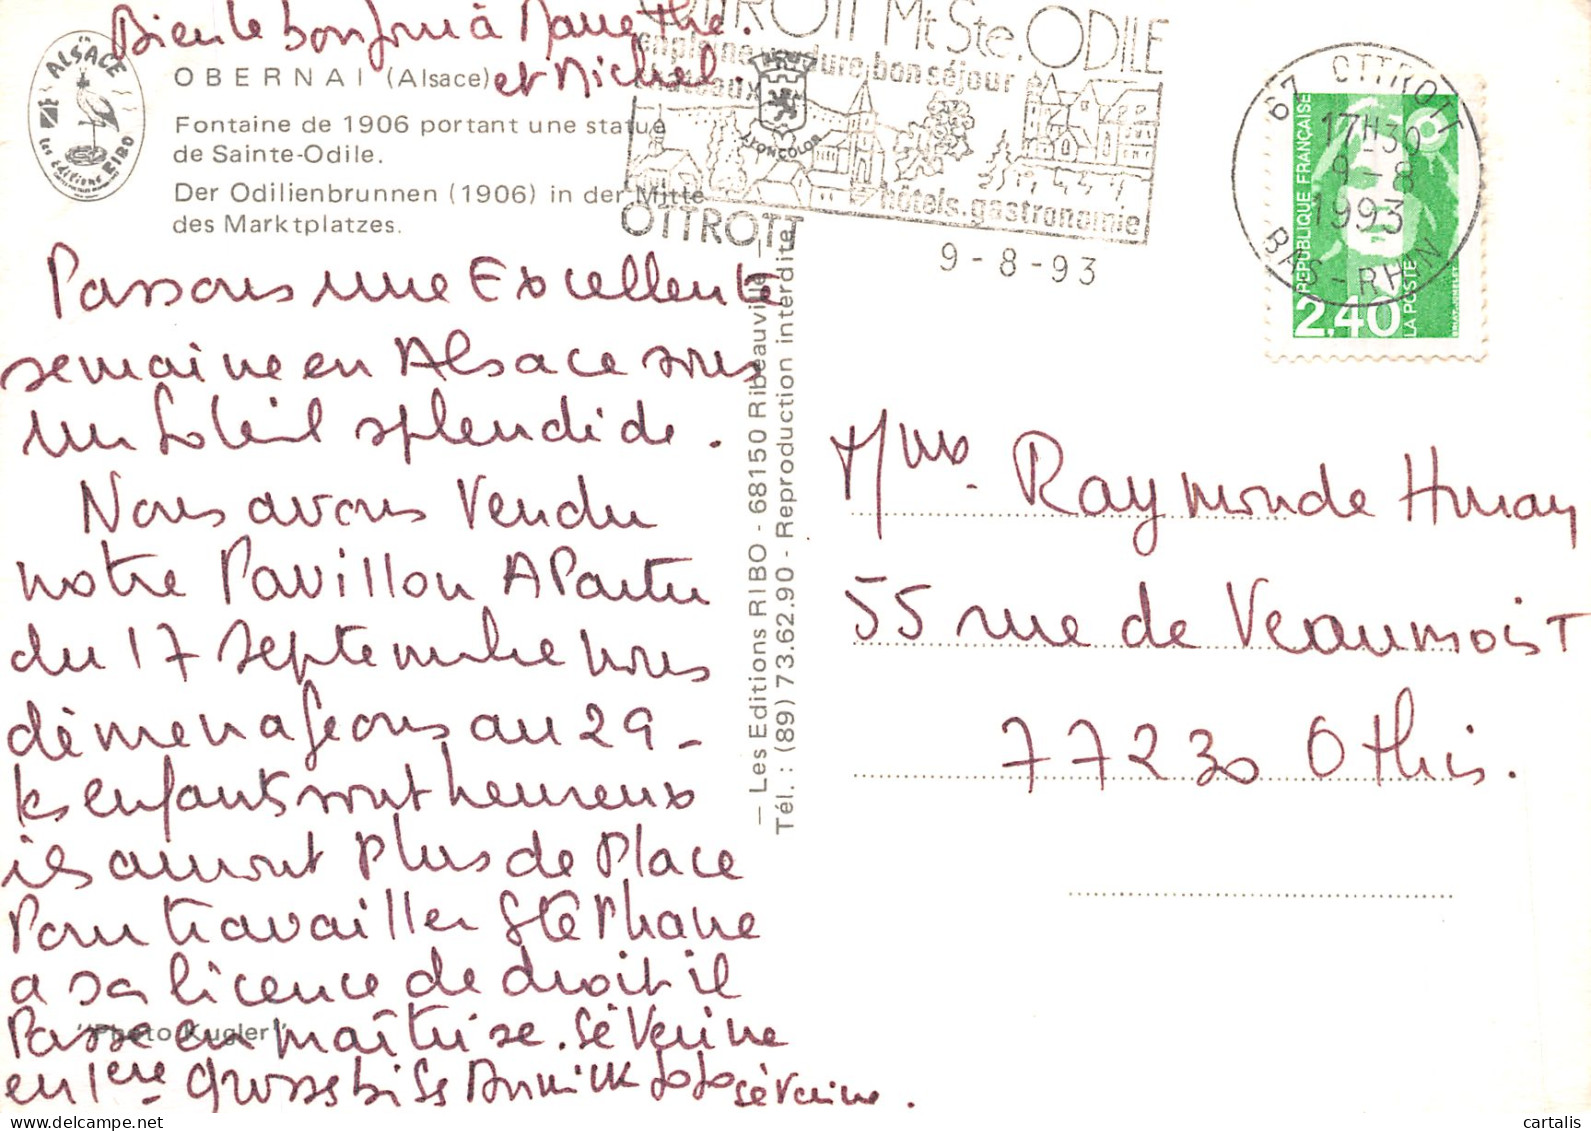 Bien le bonjour à Mauethé.
et Michel.
ALSACE
les éditions RIBO
OBERNAI (Alsace)
Fontaine de 1906 portant une statue
de Sainte-Odile.
Der Odilienbrunnen (1906) in der Mitte
des Marktplatzes.
Passons une Excellente
semaine en Alsace sous
un Soleil splendide.
Nous avons Vendu
notre Pavillon A Partir
du 17 septembre nous
déménageons au 29 -
les enfants sont heureux
ils auront Plus de Place
Pour travailler Stéphane
a sa licence de droit il
Passe en maîtrise. Séverine
en 1ère grosses bises Annick JoJo Séverine.
"Photo Kugler"
— Les Editions RIBO - 68150 Ribeauvillé —
Tél. : (89) 73.62.90 - Reproduction interdite
OTTROTT Mt Ste. ODILE
en pleine verdure, bon séjour
châteaux
LYONCOLOR
hôtels. gastronomie
OTTROTT
9-8-93
67 OTTROTT
17H30
9-8
1993
BAS-RHIN
REPUBLIQUE FRANÇAISE
2,40
LA POSTE
Mme. Raymonde
55 rue de Veaumoist
77230 Othis.
cartalis